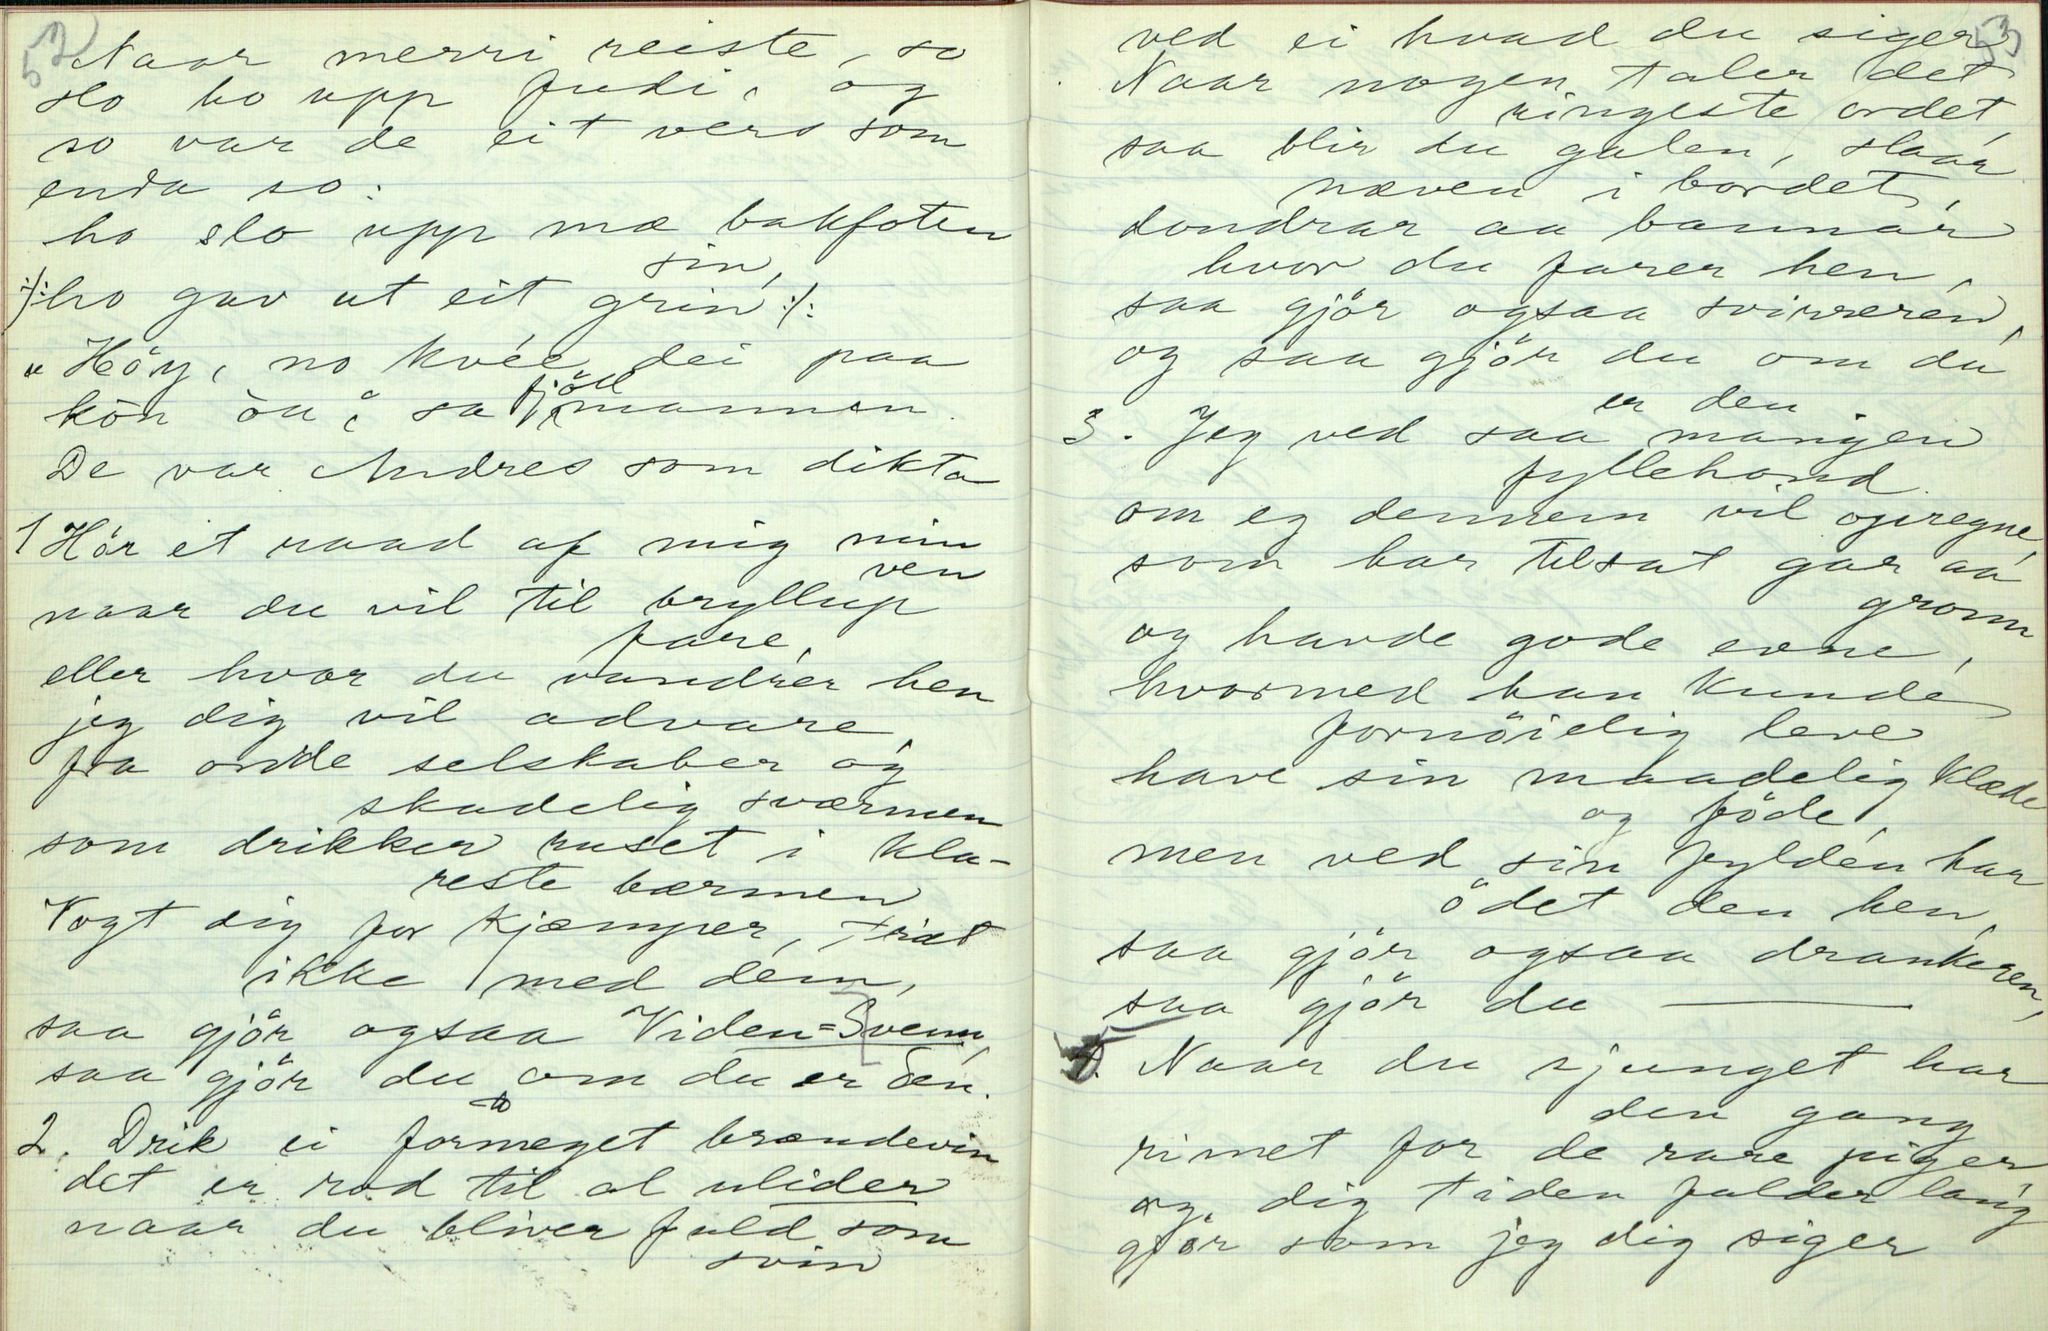 52
Naar merri reiste, so
slo ho upp Judi, og
so var de eit vers som
enda so:
ho slo upp mæ bakfoten
sin,
:/: ho gav ut eit grin :/:
"Höy, no kvée dei paa
kön òu", sa fjöllmannen.
De var Andres som dikta
1 Hör et raad af mig min
ven
naar du vil til bryllup
fare,
eller hvor du vandrer hen
jeg dig vil advare
fra onde selskaber og
skadelig sværmen
som drikker ruset i kla-
reste bærmen
Vogt dig for kjæmper, træt
ikke med dem,
saa gjör ogsaa Viden=Svenn,
saa gjör du om du er den.
2. Drik ei formeget brændevin
det er rod til al ulider
naar du bliver fuld som
svin
53
ved ei hvad du siger,
Naar nogen taler det
ringeste ordet,
saa blir du galen, slaar
næven i bordet,
dondrar aa bannar
hvor du farer hen,
saa gjör ogsaa svirreren,
og saa gjör du om du
er den
3. Jeg ved saa mangen
fyllehond
om eg dennem vil opregne,
som har tilsat gar aa
gronn
og havde gode evne,
hvormed han kunde
fornöielig leve
have sin maadelig klæde
og föde,
men ved sin fylden har
ödet den hen,
saa gjör ogsaa drankeren,
saa gjör du ———
4. Naar du sjunget har
den gang
rimet for de rare piger
og dig tiden falder lang
gjör som jeg dig siger